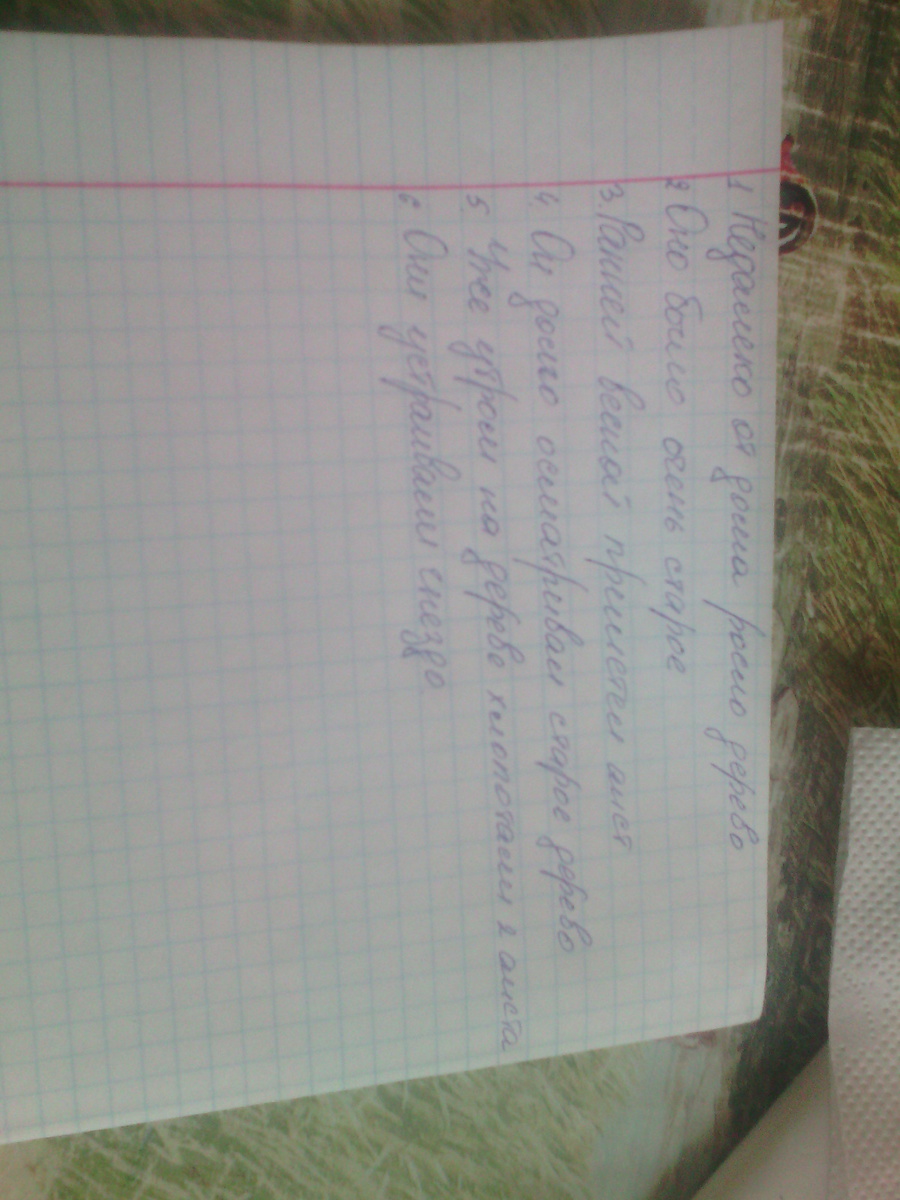 1 Недалеко от дома росло дерево
2 Оно было очень старое
3. Ранней весной прилетел аист
4. Он долго осматривал старое дерево
5. Уже утром на дереве хлопотали 2 аиста
6 Они устраивали гнездо.